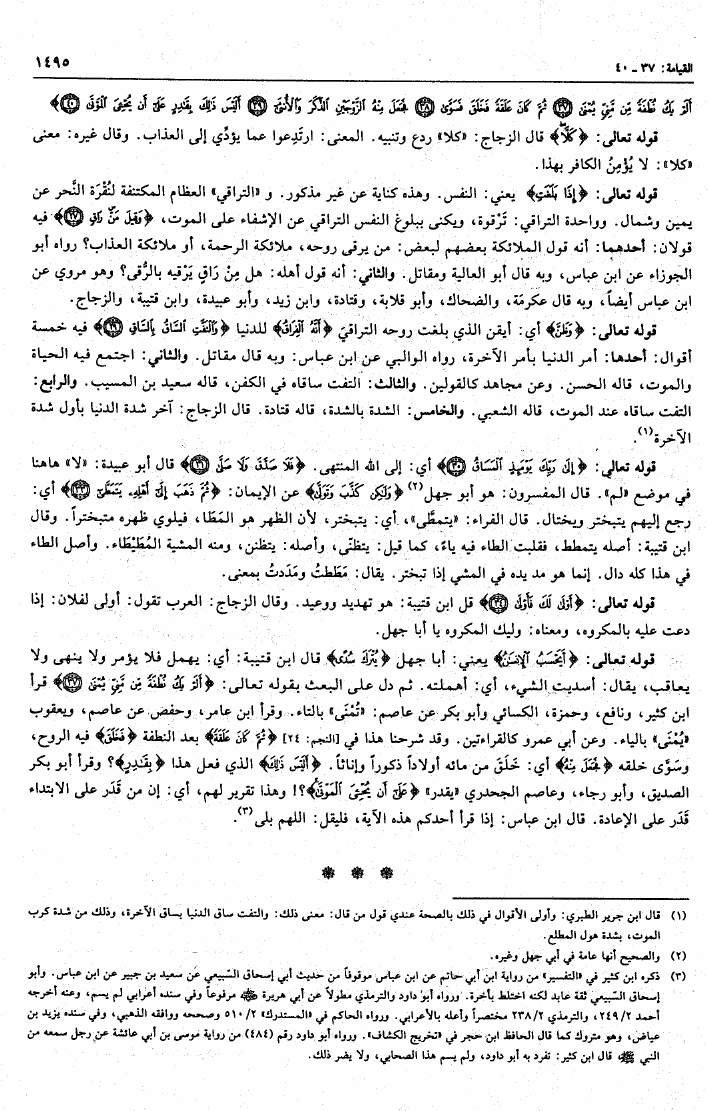 القيامة: ٣٧ ـ ٤٠
١٤٩٥
أَلَمْ يَكُ نُطْفَةً مِّن مَّنِيٍّ يُمْنَىٰ ﴿٣٧﴾ ثُمَّ كَانَ عَلَقَةً فَخَلَقَ فَسَوَّىٰ ﴿٣٨﴾ فَجَعَلَ مِنْهُ الزَّوْجَيْنِ الذَّكَرَ وَالْأُنثَىٰ ﴿٣٩﴾ أَلَيْسَ ذَٰلِكَ بِقَادِرٍ عَلَىٰ أَن يُحْيِيَ الْمَوْتَىٰ ﴿٤٠﴾
قوله تعالى: ﴿كَلَّا﴾ قال الزجاج: «كلا» ردع وتنبيه. المعنى: ارتَدِعوا عما يؤدِّي إلى العذاب. وقال غيره: معنى
«كلا»: لا يُؤْمِنُ الكافر بهذا.
قوله تعالى: ﴿إِذَا بَلَغَتِ﴾ يعني: النفس. وهذه كناية عن غير مذكور. و «التراقي» العظام المكتنفة لنُقْرَة النَّحر عن
يمين وشمال. وواحدة التراقي: تَرْقوة، ويكنى ببلوغ النفس التراقي عن الإشفاء على الموت، ﴿وَقِيلَ مَنْ رَاقٍ ﴿٢٧﴾﴾ فيه
قولان: أحدهما: أنه قول الملائكة بعضهم لبعض: من يرقى روحه، ملائكة الرحمة، أو ملائكة العذاب؟ رواه أبو
الجوزاء عن ابن عباس، وبه قال أبو العالية ومقاتل. والثاني: أنه قول أهله: هل مِنْ رَاقٍ يَرْقيه بالرُّقى؟ وهو مروي عن
ابن عباس أيضاً، وبه قال عكرمة، والضحاك، وأبو قلابة، وقتادة، وابن زيد، وأبو عبيدة، وابن قتيبة، والزجاج.
قوله تعالى: ﴿وَظَنَّ﴾ أي: أيقن الذي بلغت روحه التراقيَ ﴿أَنَّهُ الْفِرَاقُ﴾ للدنيا ﴿وَالْتَفَّتِ السَّاقُ بِالسَّاقِ ﴿٢٩﴾﴾ فيه خمسة
أقوال: أحدها: أمر الدنيا بأمر الآخرة، رواه الوالبي عن ابن عباس: وبه قال مقاتل. والثاني: اجتمع فيه الحياة
والموت، قاله الحسن. وعن مجاهد كالقولين. والثالث: التفت ساقاه في الكفن، قاله سعيد بن المسيب. والرابع:
التفت ساقاه عند الموت، قاله الشعبي. والخامس: الشدة بالشدة، قاله قتادة. قال الزجاج: آخر شدة الدنيا بأول شدة
الآخرة(١).
قوله تعالى: ﴿إِلَىٰ رَبِّكَ يَوْمَئِذٍ الْمَسَاقُ ﴿٣٠﴾﴾ أي: إلى الله المنتهى. ﴿فَلَا صَدَّقَ وَلَا صَلَّىٰ ﴿٣١﴾﴾ قال أبو عبيدة: «لا» هاهنا
في موضع «لم». قال المفسرون: هو أبو جهل(٢) ﴿وَلَٰكِن كَذَّبَ وَتَوَلَّىٰ﴾ عن الإيمان: ﴿ثُمَّ ذَهَبَ إِلَىٰ أَهْلِهِ يَتَمَطَّىٰ ﴿٣٣﴾﴾ أي:
رجع إليهم يتبختر ويختال. قال الفراء: «يتمطَّى»، أي: يتبختر، لأن الظهر هو المَطَا، فيلوي ظهره متبختراً. وقال
ابن قتيبة: أصله يتمطط، فقلبت الطاء فيه ياءً، كما قيل: يتظنَّى، وأصله: يتظنن، ومنه المشية المُطَيْطاء. وأصل الطاء
في هذا كله دال. إنما هو مد يده في المشي إذا تبختر. يقال: مَطَطتُ ومَدَدتُ بمعنى.
قوله تعالى: ﴿أَوْلَىٰ لَكَ فَأَوْلَىٰ ﴿٣٤﴾﴾ قل ابن قتيبة: هو تهديد ووعيد. وقال الزجاج: العرب تقول: أولى لفلان: إذا
دعت عليه بالمكروه، ومعناه: وليك المكروه يا أبا جهل.
قوله تعالى: ﴿أَيَحْسَبُ الْإِنسَانُ﴾ يعني: أبا جهل ﴿يُتْرَكَ سُدًى﴾ قال ابن قتيبة: أي: يهمل فلا يؤمر ولا ينهى ولا
يعاقب، يقال: أسديت الشيء، أي: أهملته. ثم دل على البعث بقوله تعالى: ﴿أَلَمْ يَكُ نُطْفَةً مِّن مَّنِيٍّ يُمْنَىٰ ﴿٣٧﴾﴾ قرأ
ابن كثير، ونافع، وحمزة، الكسائي وأبو بكر عن عاصم: «تُمْنَى» بالتاء. وقرأ ابن عامر، وحفص عن عاصم، ويعقوب
«يُمْنَى» بالياء. وعن أبي عمرو كالقراءتين. وقد شرحنا هذا في [النجم: ٢٤] ﴿ثُمَّ كَانَ عَلَقَةً﴾ بعد النطفة ﴿فَخَلَقَ﴾ فيه الروح،
وسَوَّى خلقه ﴿فَجَعَلَ مِنْهُ﴾ أي: خَلَقَ من مائه أولاداً ذكوراً وإناثاً. ﴿أَلَيْسَ ذَٰلِكَ﴾ الذي فعل هذا ﴿بِقَادِرٍ﴾؟ وقرأ أبو بكر
الصديق، وأبو رجاء، وعاصم الجحدري «يقدر» ﴿عَلَىٰ أَن يُحْيِيَ الْمَوْتَىٰ﴾؟! وهذا تقرير لهم، أي: إن من قَدَر على الابتداء
قَدَر على الإعادة. قال ابن عباس: إذا قرأ أحدكم هذه الآية، فليقل: اللهم بلى(٣).
* * *
(١) قال ابن جرير الطبري: وأولى الأقوال في ذلك بالصحة عندي قول من قال: معنى ذلك: والتفت ساق الدنيا بساق الآخرة، وذلك من شدة كرب
الموت، بشدة هول المطلع.
(٢) والصحيح أنها عامة في أبي جهل وغيره.
(٣) ذكره ابن كثير في «التفسير» من رواية ابن أبي حاتم عن ابن عباس موقوفاً من حديث أبي إسحاق السَّبيعي عن سعيد بن جبير عن ابن عباس. وأبو
إسحاق السَّبيعي ثقة عابد لكنه اختلط بأخرة. ورواه أبو داود والترمذي مطولاً عن أبي هريرة ﷺ مرفوعاً وفي سنده أعرابي لم يسم، وعنه أخرجه
أحمد ٢٤٩/٢، والترمذي ٢٣٨/٢ مختصراً وأعله بالأعرابي. ورواه الحاكم في «المستدرك» ٥١٠/٢ وصححه ووافقه الذهبي، وفي سنده يزيد بن
عياض، وهو متروك كما قال الحافظ ابن حجر في «تخريج الكشاف». ورواه أبو داود رقم (٤٨٤) من رواية موسى بن أبي عائشة عن رجل سمعه من
النبي ﷺ، قال ابن كثير: تفرد به أبو داود، ولم يسم هذا الصحابي، ولا يضر ذلك.